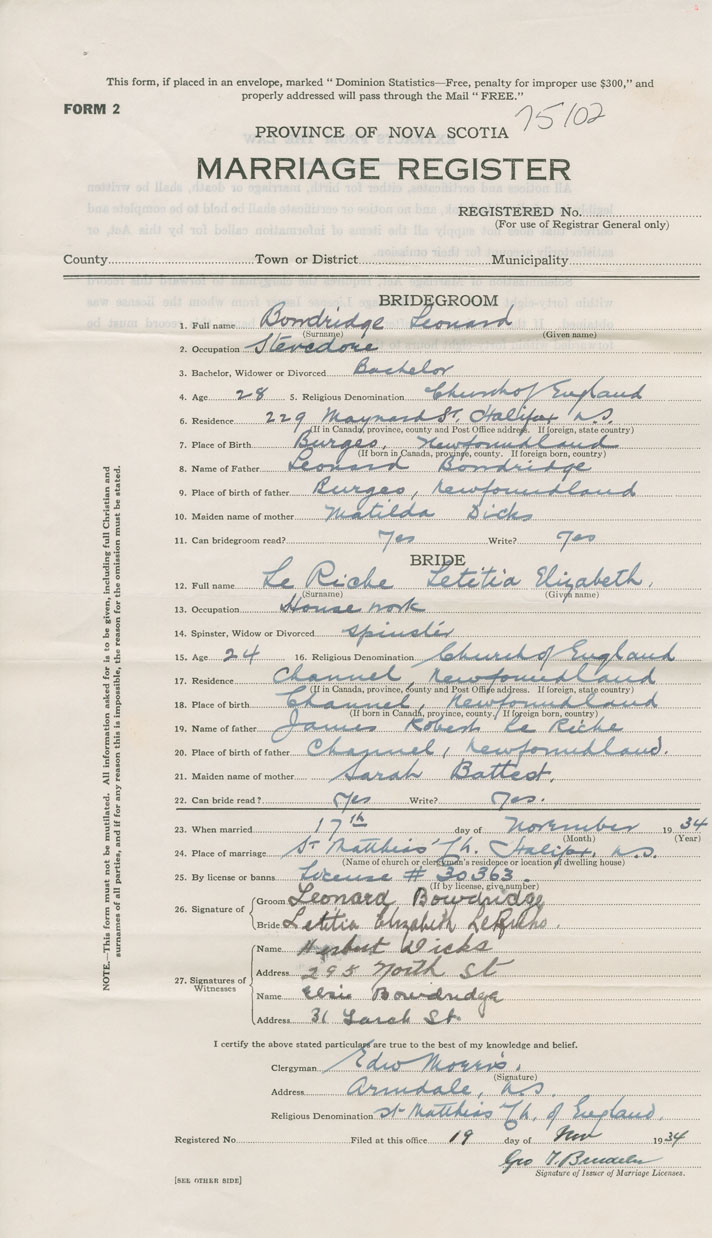 This form, if placed in an envelope, marked " Dominion Statistics—Free, penalty for improper use $300," and
properly addressed will pass through the Mail " FREE."
FORM 2
75102
PROVINCE OF NOVA SCOTIA
MARRIAGE REGISTER
REGISTERED No.
(For use of Registrar General only)
County Town or District Municipality
BRIDEGROOM
1. Full name Bowdridge Leonard
(Surname) (Given name)
2. Occupation Stevedore
3. Bachelor, Widower or Divorced Bachelor
4. Age 28 5. Religious Denomination Church of England
6. Residence 229 Maynard St. Halifax N.S.
(If in Canada, province, county and Post Office address. If foreign, state country)
7. Place of Birth Burgeo, Newfoundland
(If born in Canada, province, county. If foreign born, country)
8. Name of Father Leonard Bowdridge
9. Place of birth of father Burgeo, Newfoundland
10. Maiden name of mother Matilda Dicks
11. Can bridegroom read? Yes Write? Yes
BRIDE
12. Full name Le Riche Letitia Elizabeth.
(Surname) (Given name)
13. Occupation House work
14. Spinster, Widow or Divorced Spinster
15. Age 24 16. Religious Denomination Church of England
17. Residence Channel, Newfoundland
(If in Canada, province, county and Post Office address. If foreign, state country)
18. Place of birth Channel, Newfoundland
(If born in Canada, province, county. If foreign born, country)
19. Name of father James Robert Le Riche
20. Place of birth of father Channel, Newfoundland.
21. Maiden name of mother Sarah Battest.
22. Can bride read? Yes Write? Yes.
23. When married 17th day of November 1934
(Month) (Year)
24. Place of marriage St Matthias' Ch. Halifax, N.S.
(Name of church or clergyman's residence or location of dwelling house)
25. By license or banns License # 30363.
(If by license, give number)
26. Signature of
Groom Leonard Bowdridge
Bride Letitia Elizabeth
27. Signatures of Witnesses
Name Herbert Dicks
Address 295 North St
Name Elsie Bowdridge
Address 31 Larch St.
I certify the above stated particulars are true to the best of my knowledge and belief.
Clergyman Edw Morris.
(Signature)
Address Armdale, N.S.
Religious Denomination St Matthias Ch. of England.
Registered No Filed at this office 19 day of Nov 1934
Geo T.
Signature of Issuer of Marriage Licenses.
[SEE OTHER SIDE]
NOTE.—This form must not be mutilated. All information asked for is to be given, including full Christian and
surnames of all parties, and if for any reason this is impossible, the reason for the omission must be stated.